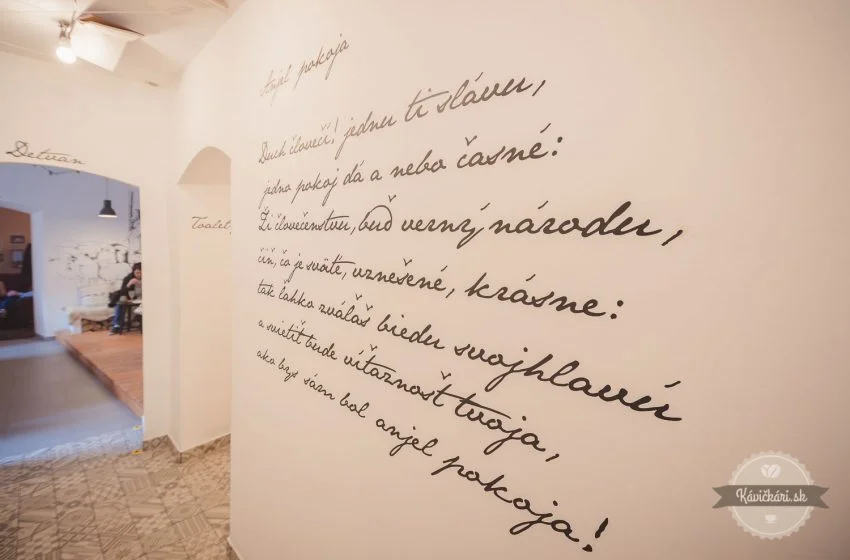 Anjel pokoja
Duch človečí! jednu ti slávu,
jedno pokoj dá a nebo časné:
Ži človečenstvu, buď verný národu,
čiň, čo je sväté, vznešené, krásne:
tak ľahko zválaš biedu svojhlavú
a svietiť bude víťaznosť tvoja,
ako bys sám bol anjel pokoja!
Detvan
Toalety
Kávičkári.sk